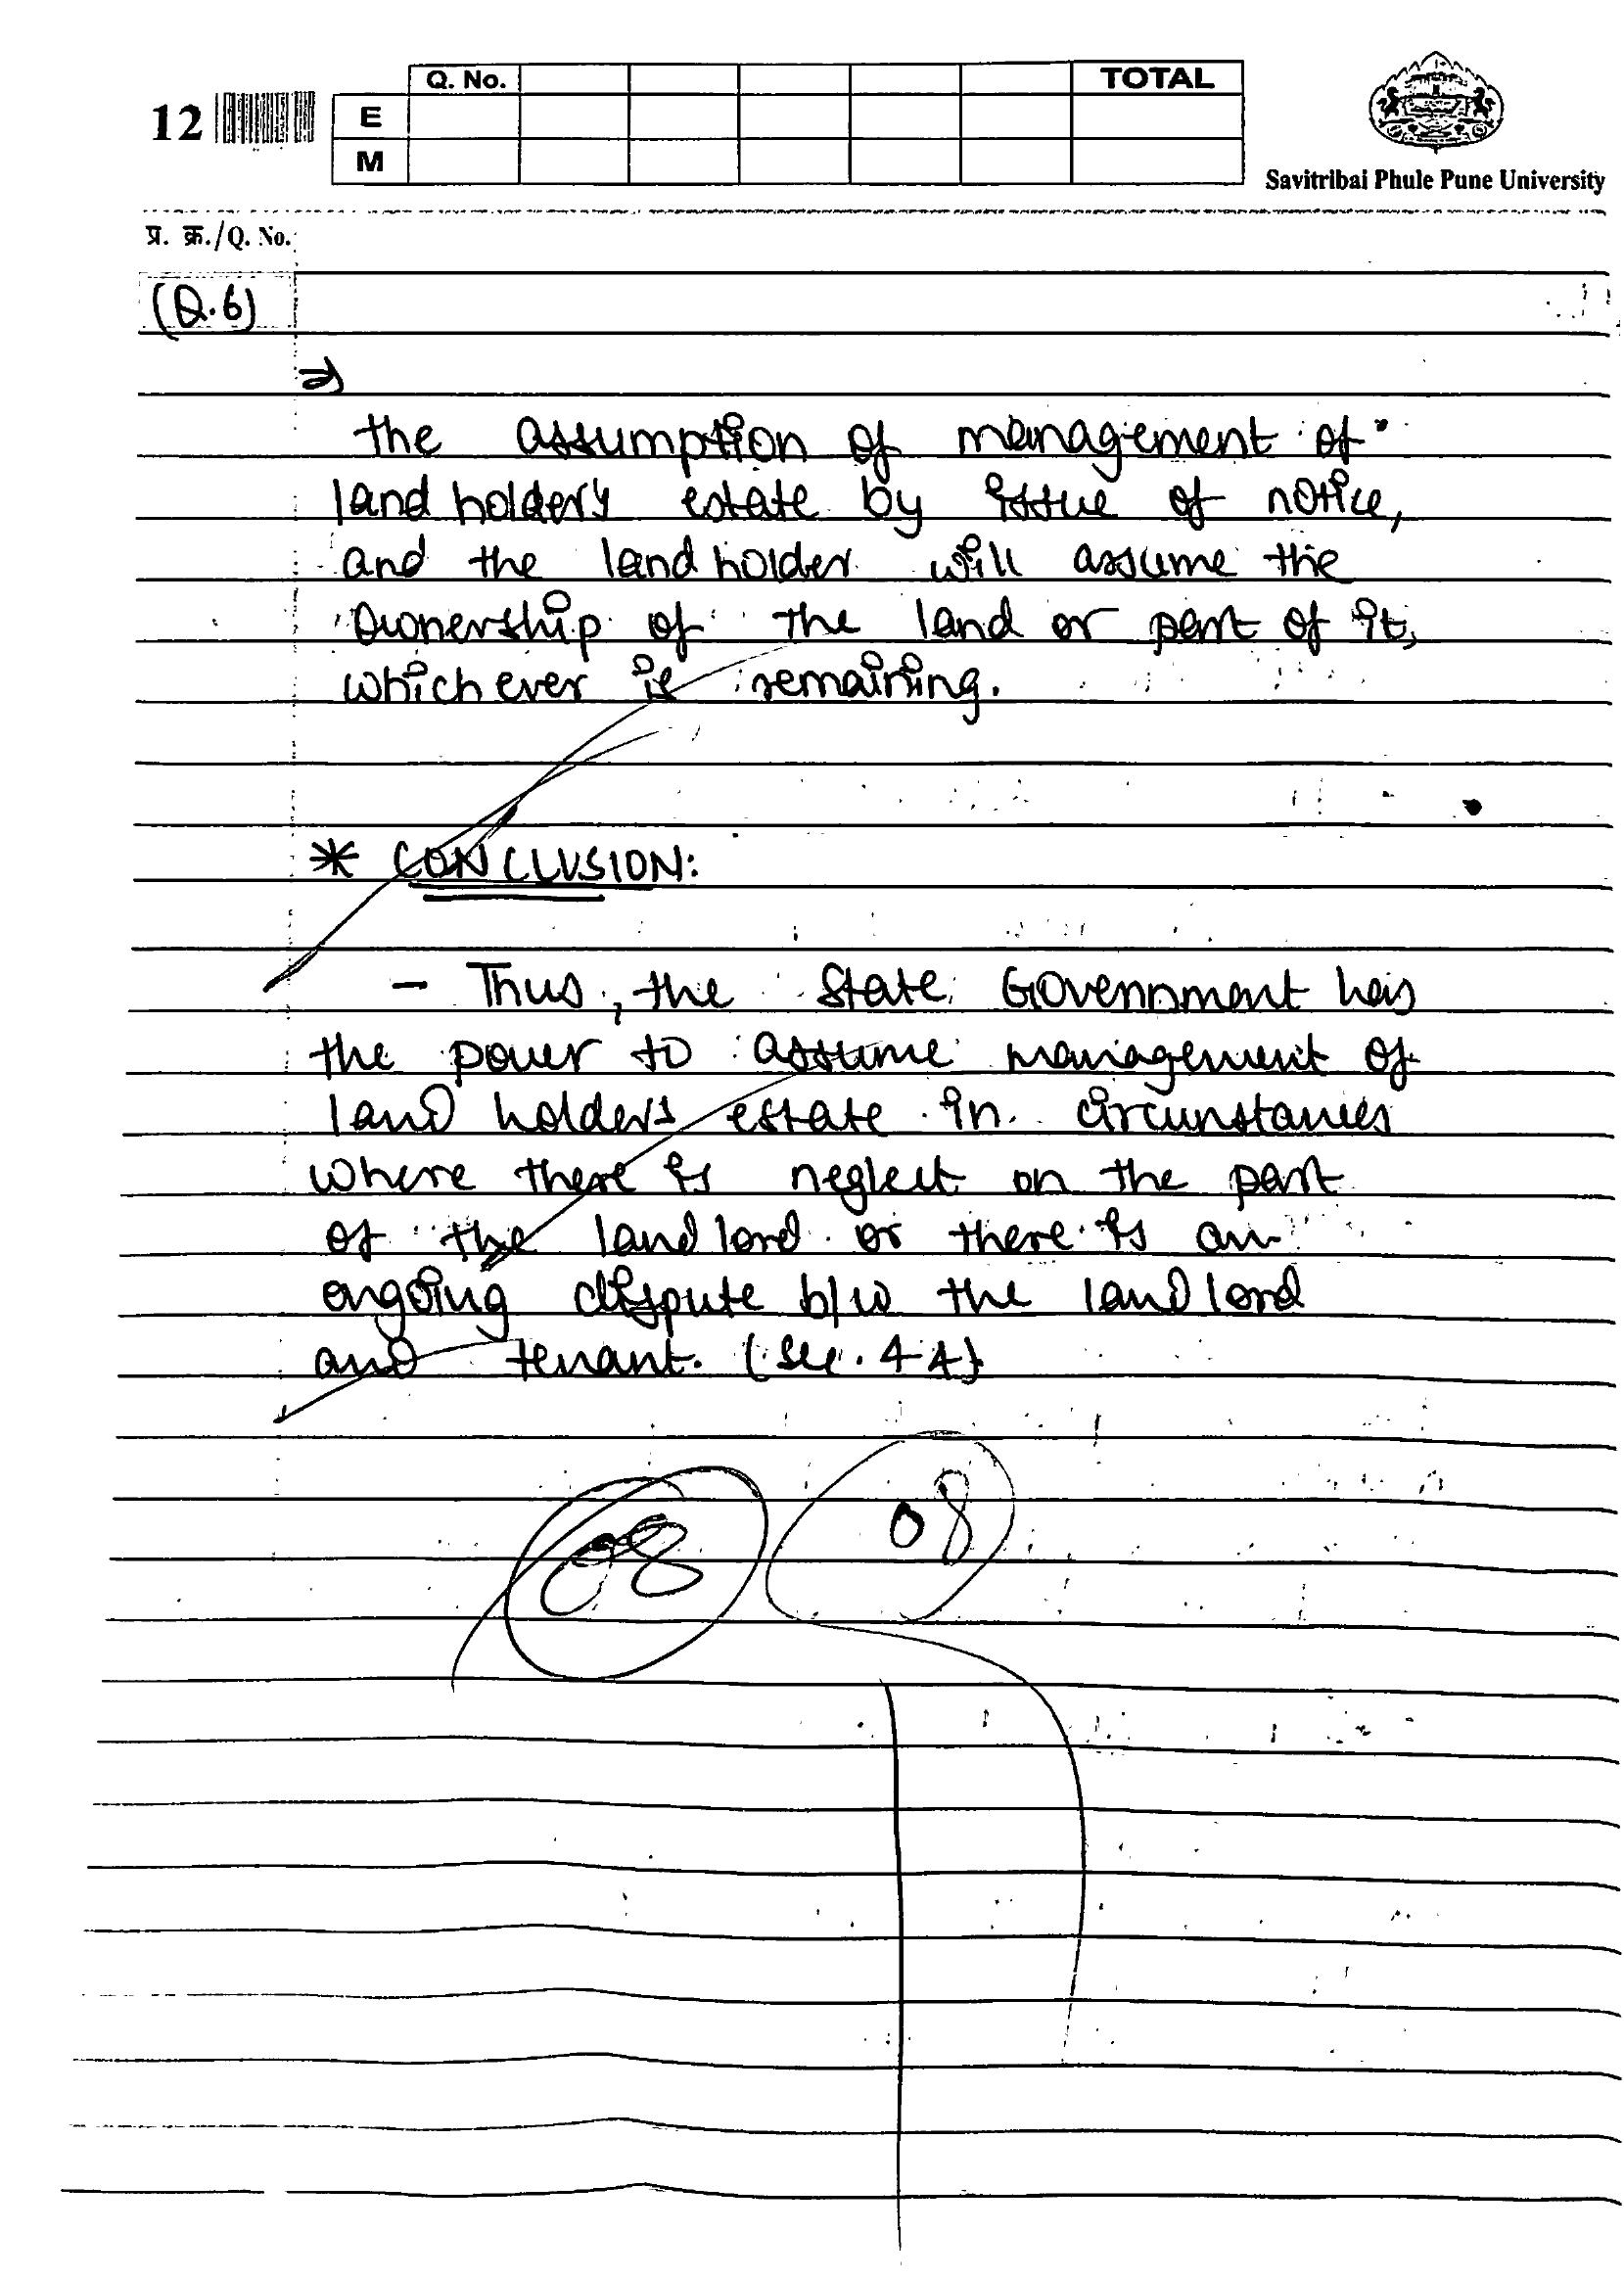 Q. No. TOTAL
12 E
M
Savitribai Phule Pune University
प्र. क्र./Q. No.
(Q.6)
the assumption of management of
land holder's estate by issue of notice,
and the land holder will assume the
Ownership of the land or part of it,
whichever is remaining.
* CONCLUSION:
- Thus, the State Government has
the power to assume management of
land holders estate in circumstances
where there is neglect on the part
of the landlord or there is an
ongoing dispute b/w the landlord
and tenant. (Sec. 44)
08 08